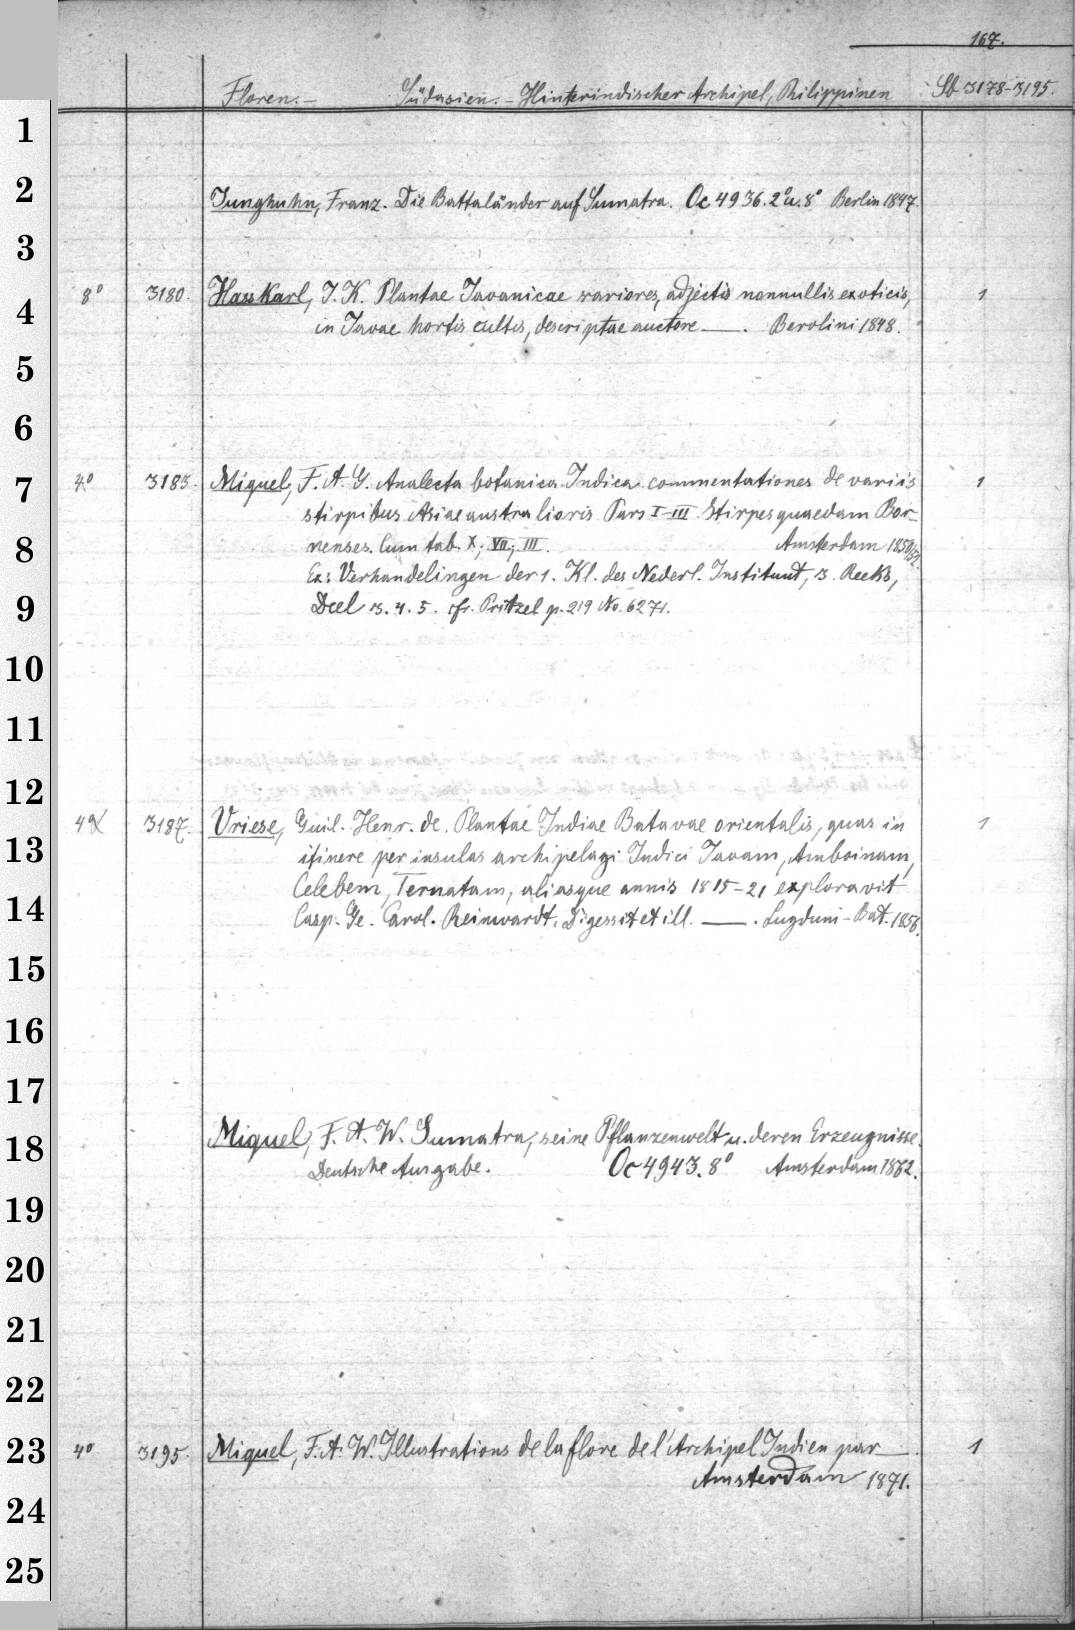 167.
Floren. — Südasien. — Hinterindischer Archipel, Philippinen Sb 3178-3195.
1
2
Junghuhn, Franz. Die Battaländer auf Sumatra. Oc 4936. 2° u. 8° Berlin 1847.
3
8° 3180. Hasskarl, J. K. Plantae Javanicae rariores, adjectis nonnullis exoticis, 1
4
in Javae hortis cultis, descriptae auctore —. Berolini 1848.
5
6
7
4° 3183. Miquel, F. A. G. Analecta botanica Indica commentationes de variis 1
stirpibus Asiae australioris Pars I-III Stirpes quaedam Bor-
8
nenses. Cum tab. X; VII; III. Amsterdam 1850/52.
Ex: Verhandelingen der 1. Kl. des Nederl. Instituut, 3. Reeks,
9
Deel 3. 4. 5. cfr. Pritzel p. 219 No. 6271.
10
11
12
4° 3187. Vriese, Guil. Henr. de. Plantae Indiae Batavae orientalis, quas in 1
13
itinere per insulas archipelagi Indici Javam, Amboinam,
Celebem, Ternatam, aliasque annis 1815-21 exploravit
14
Casp. Ge. Carol. Reinwardt. Digessit et ill. —. Lugduni-Bat. 1856.
15
16
17
18
Miquel, F. A. W. Sumatra, seine Pflanzenwelt u. deren Erzeugnisse.
Deutsche Ausgabe. Oc 4943. 8° Amsterdam 1862.
19
20
21
22
23
4° 3195. Miquel, F. A. W. Illustrations de la flore de l'Archipel Indien par —. 1
Amsterdam 1871.
24
25